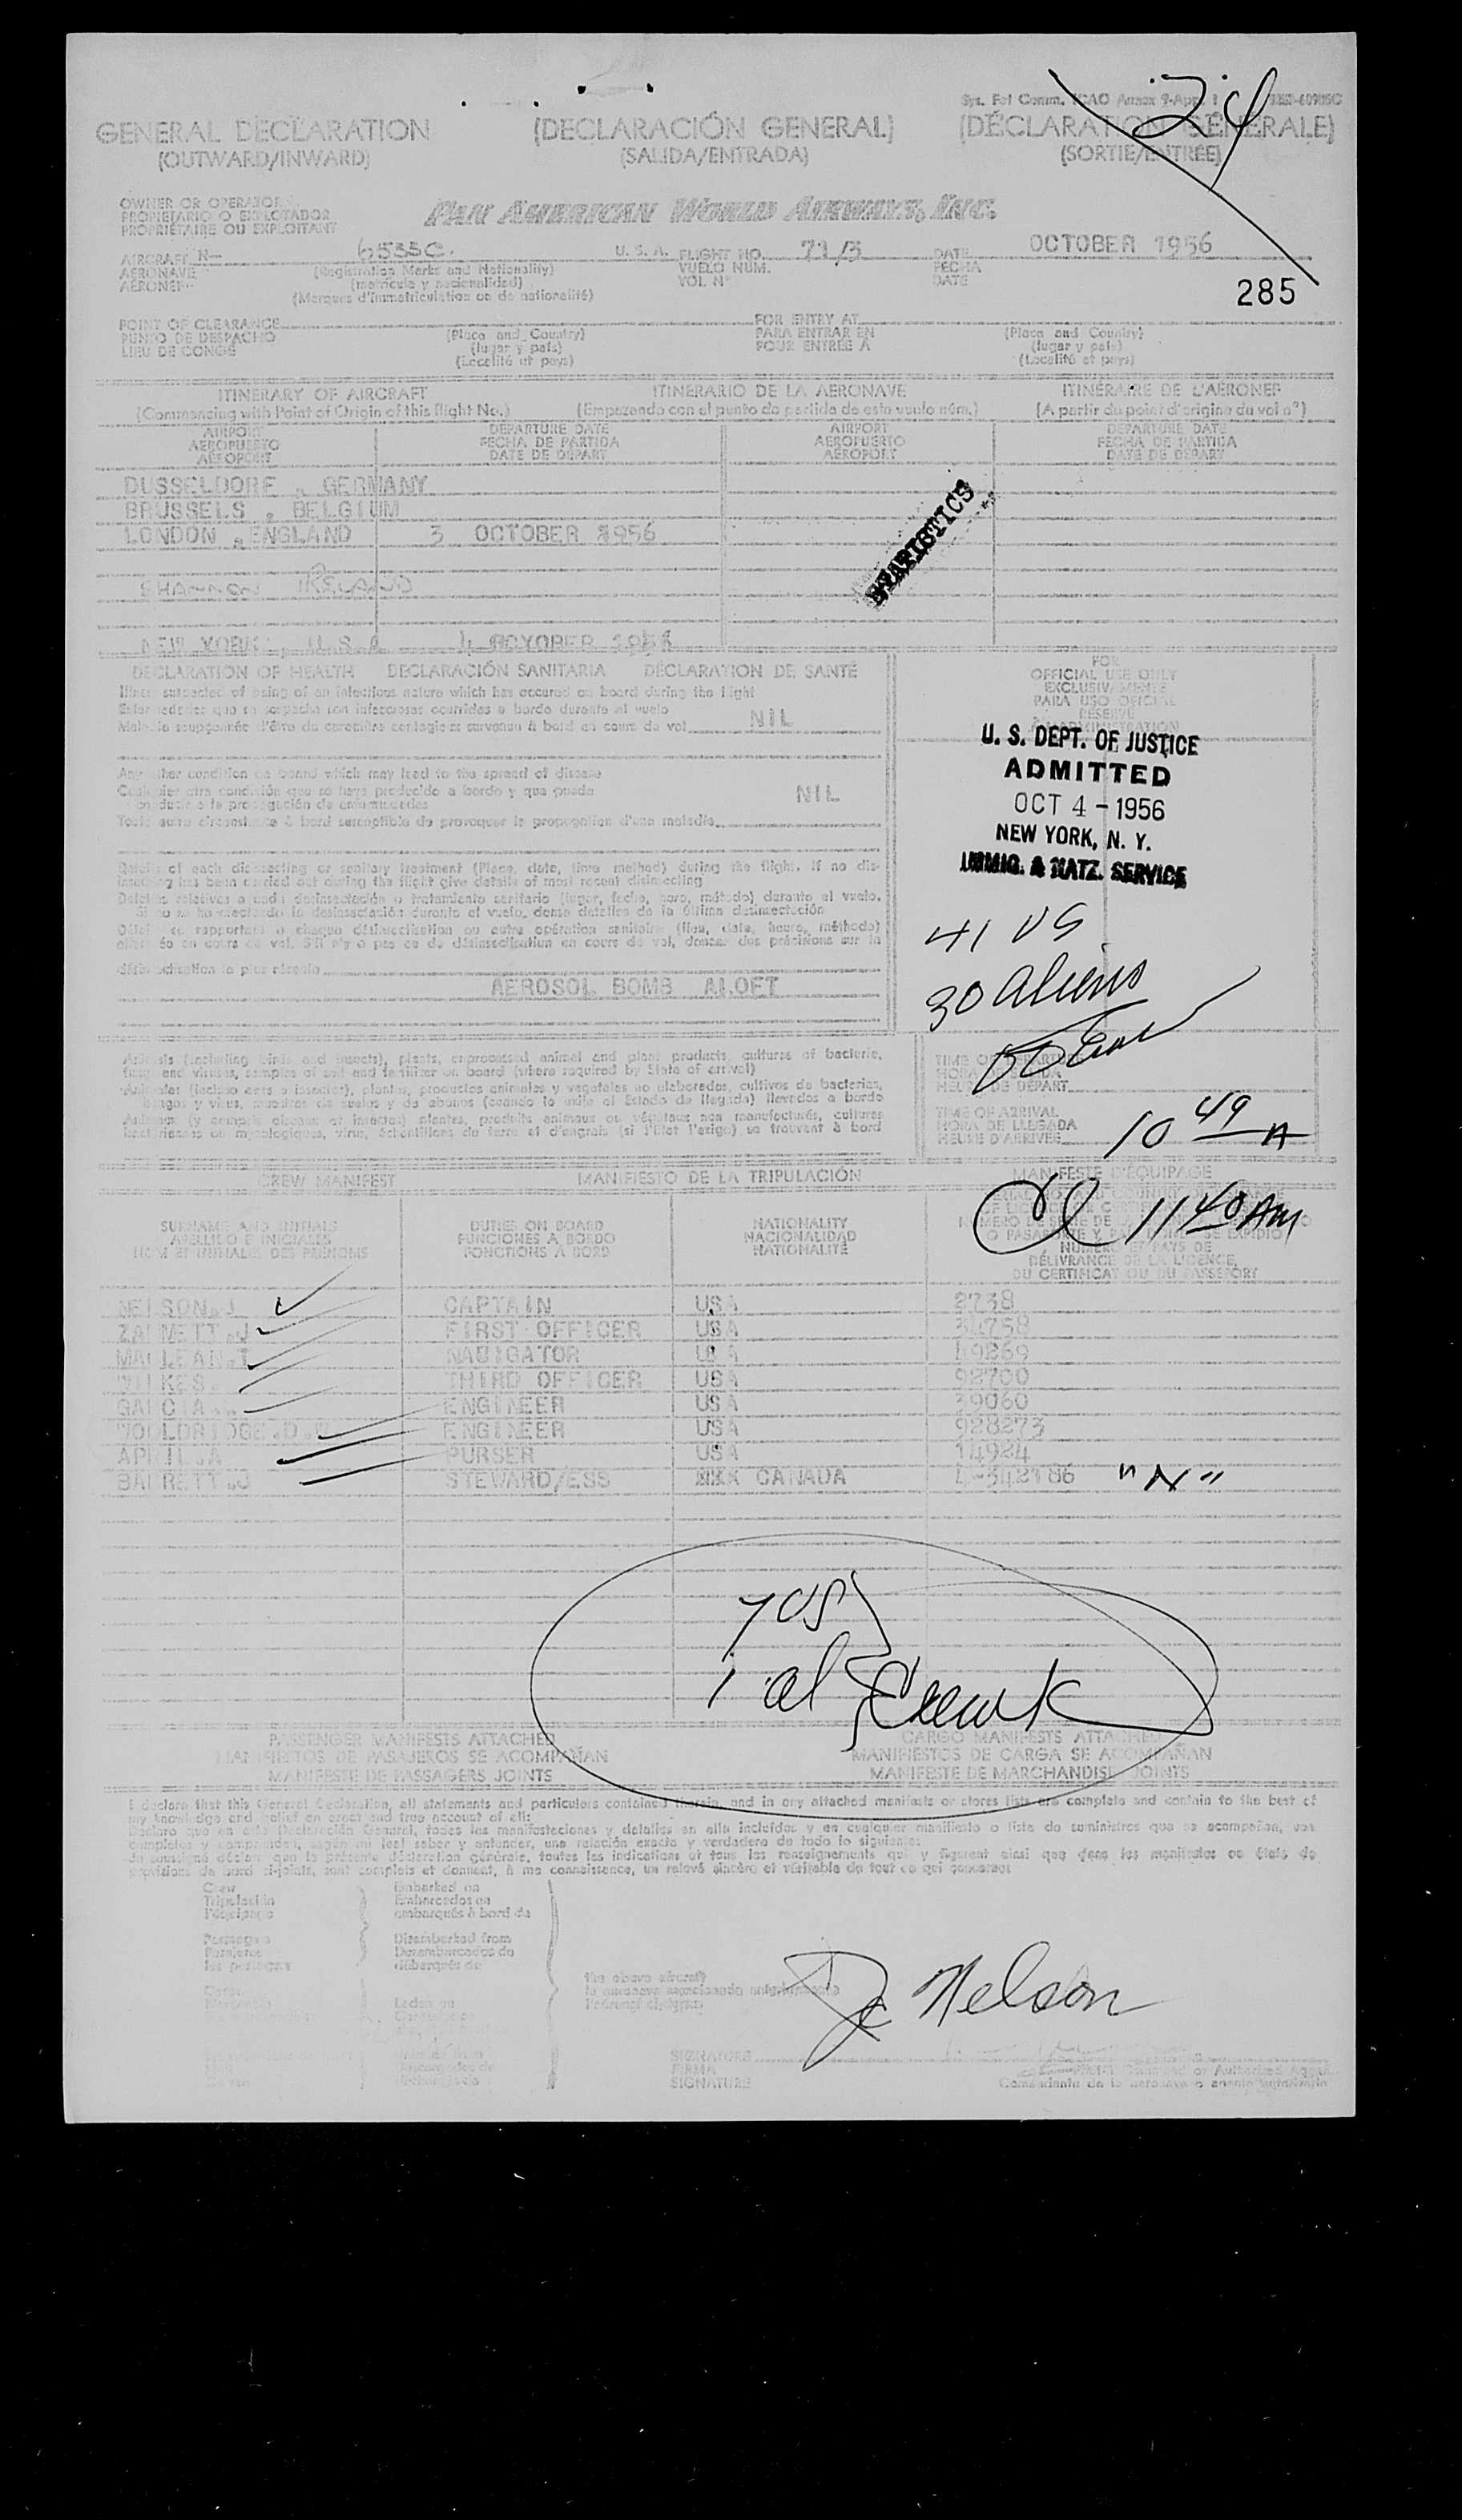 Sys. Fal Comm. ICAO Annex 9-App. 1
24
GENERAL DECLARATION (DECLARACIÓN GENERAL) (DÉCLARATION GÉNÉRALE)
(OUTWARD/INWARD) (SALIDA/ENTRADA) (SORTIE/ENTRÉE)
OWNER OR OPERATOR
PROPIETARIO O EXPLOTADOR
PROPRIÉTAIRE OU EXPLOITANT
PAN AMERICAN WORLD AIRWAYS, INC.
AIRCRAFT N— U. S. A. FLIGHT NO. 71/3 DATE OCTOBER 1956
AERONAVE (Registration Marks and Nationality) VUELO NÚM. FECHA
AÉRONEF (matrícula y nacionalidad) VOL N° DATE
(Marques d'immatriculation ou de nationalité)
285
POINT OF CLEARANCE FOR ENTRY AT
PUNTO DE DESPACHO (Place and Country) PARA ENTRAR EN (Place and Country)
LIEU DE CONGÉ (lugar y país) POUR ENTRÉE À (lugar y país)
(Localité et pays) (Localité et pays)
ITINERARY OF AIRCRAFT ITINERARIO DE LA AERONAVE ITINÉRAIRE DE L'AÉRONEF
(Commencing with Point of Origin of this flight No.) (Empezando con el punto de partida de este vuelo núm.) (A partir du point d'origine du vol n°)
AIRPORT DEPARTURE DATE AIRPORT DEPARTURE DATE
AEROPUERTO FECHA DE PARTIDA AEROPUERTO FECHA DE PARTIDA
AÉROPORT DATE DE DÉPART AÉROPORT DATE DE DÉPART
DUSSELDORF , GERMANY
BRUSSELS , BELGIUM
LONDON , ENGLAND 3 OCTOBER 1956
STATISTICS
SHANNON IRELAND
NEW YORK , U.S.A 4 OCYOBER 1956
DECLARATION OF HEALTH DECLARACIÓN SANITARIA DÉCLARATION DE SANTÉ
Illness suspected of being of an infectious nature which has occured on board during the flight
Enfermedades que se sospecha son infecciosas ocurridas a bordo durante el vuelo
Maladie soupçonnée d'être de caractère contagieux survenue à bord en cours de vol NIL
Any other condition on board which may lead to the spread of disease
Cualquier otra condición que se haya producido a bordo y que pueda
conducir a la propagación de enfermedades NIL
Toute autre circonstance à bord susceptible de provoquer la propagation d'une maladie
Details of each disinsecting or sanitary treatment (Place, date, time method) during the flight. If no dis-
insecting has been carried out during the flight give details of most recent disinsecting
Detalles relativos a cada desinsectación o tratamiento sanitario (lugar, fecha, hora, método) durante el vuelo.
Si no se ha efectuado la desinsectación durante el vuelo, dense detalles de la última desinsectación
Détails se rapportant à chaque désinsectisation ou autre opération sanitaire (lieu, date, heure, méthode)
effectuée en cours de vol. S'il n'y a pas eu de désinsectisation en cours de vol, donner des précisions sur la
désinsectisation la plus récente
AEROSOL BOMB ALOFT
FOR
OFFICIAL USE ONLY
EXCLUSIVAMENTE
PARA USO OFICIAL
RÉSERVÉ
À L'ADMINISTRATION
U. S. DEPT. OF JUSTICE
ADMITTED
OCT 4 - 1956
NEW YORK, N. Y.
IMMIG. & NATZ. SERVICE
41 US
30 aliens
Animals (including birds and insects), plants, unprocessed animal and plant products, cultures of bacteria,
fungi and viruses, samples of soil and fertilizer on board (where required by State of arrival)
Animales (incluso aves e insectos), plantas, productos animales y vegetales no elaborados, cultivos de bacterias,
hongos y virus, muestras de suelos y de abonos (cuando lo exija el Estado de llegada) llevados a bordo
Animaux (y compris oiseaux et insectes) plantes, produits animaux ou végétaux non manufacturés, cultures
bactériennes ou mycologiques, virus, échantillons de terre et d'engrais (si l'État l'exige) se trouvant à bord
TIME OF DEPARTURE
HORA DE SALIDA
HEURE DE DÉPART
TIME OF ARRIVAL
HORA DE LLEGADA
HEURE D'ARRIVÉE 10 49 A
CREW MANIFEST MANIFIESTO DE LA TRIPULACIÓN MANIFESTE D'ÉQUIPAGE
11 40 AM
SURNAME AND INITIALS DUTIES ON BOARD NATIONALITY
APELLIDO E INICIALES FUNCIONES A BORDO NACIONALIDAD
NOM ET INITIALES DES PRÉNOMS FONCTIONS À BORD NATIONALITÉ
NUMÉRO ET PAYS DE
DÉLIVRANCE DE LA LICENCE,
DU CERTIFICAT OU DU PASSEPORT
NELSON.J CAPTAIN USA 2738
ZALMETT.J FIRST OFFICER USA 34758
MACLEAN.T NAVIGATOR USA 49869
WILKES. THIRD OFFICER USA 92700
GARCIA. ENGINEER USA 39060
WOOLDRIDGE.D. ENGINEER USA 928273
APRIL.A PURSER USA 14924
BARRETT.J STEWARD/ESS CANADA 4-342186 "N"
7 US
1 al Crew
PASSENGER MANIFESTS ATTACHED CARGO MANIFESTS ATTACHED
MANIFIESTOS DE PASAJEROS SE ACOMPAÑAN MANIFIESTOS DE CARGA SE ACOMPAÑAN
MANIFESTE DE PASSAGERS JOINTS MANIFESTE DE MARCHANDISES JOINTS
I declare that this General Declaration, all statements and particulars contained therein, and in any attached manifests or stores lists are complete and contain to the best of
my knowledge and belief an exact and true account of all:
Declaro que en esta Declaración General, todas las manifestaciones y detalles en ella incluídos y en cualquier manifiesto o lista de suministros que se acompañan, son
completos y comprenden, según mi leal saber y entender, una relación exacta y verdadera de todo lo siguiente:
Je soussigné déclare que la présente déclaration générale, toutes les indications et tous les renseignements qui y figurent ainsi que dans les manifestes ou états de
provisions de bord ci-joints, sont complets et donnent, à ma connaissance, un relevé sincère et véritable de tout ce qui concerne:
Crew Embarked on
Tripulación Embarcados en
l'équipage embarqués à bord de
Passengers Disembarked from
Pasajeros Desembarcados de
les passagers débarqués de
Cargo the above aircraft
Laden on
J. Nelson
SIGNATURE
FIRMA
SIGNATURE